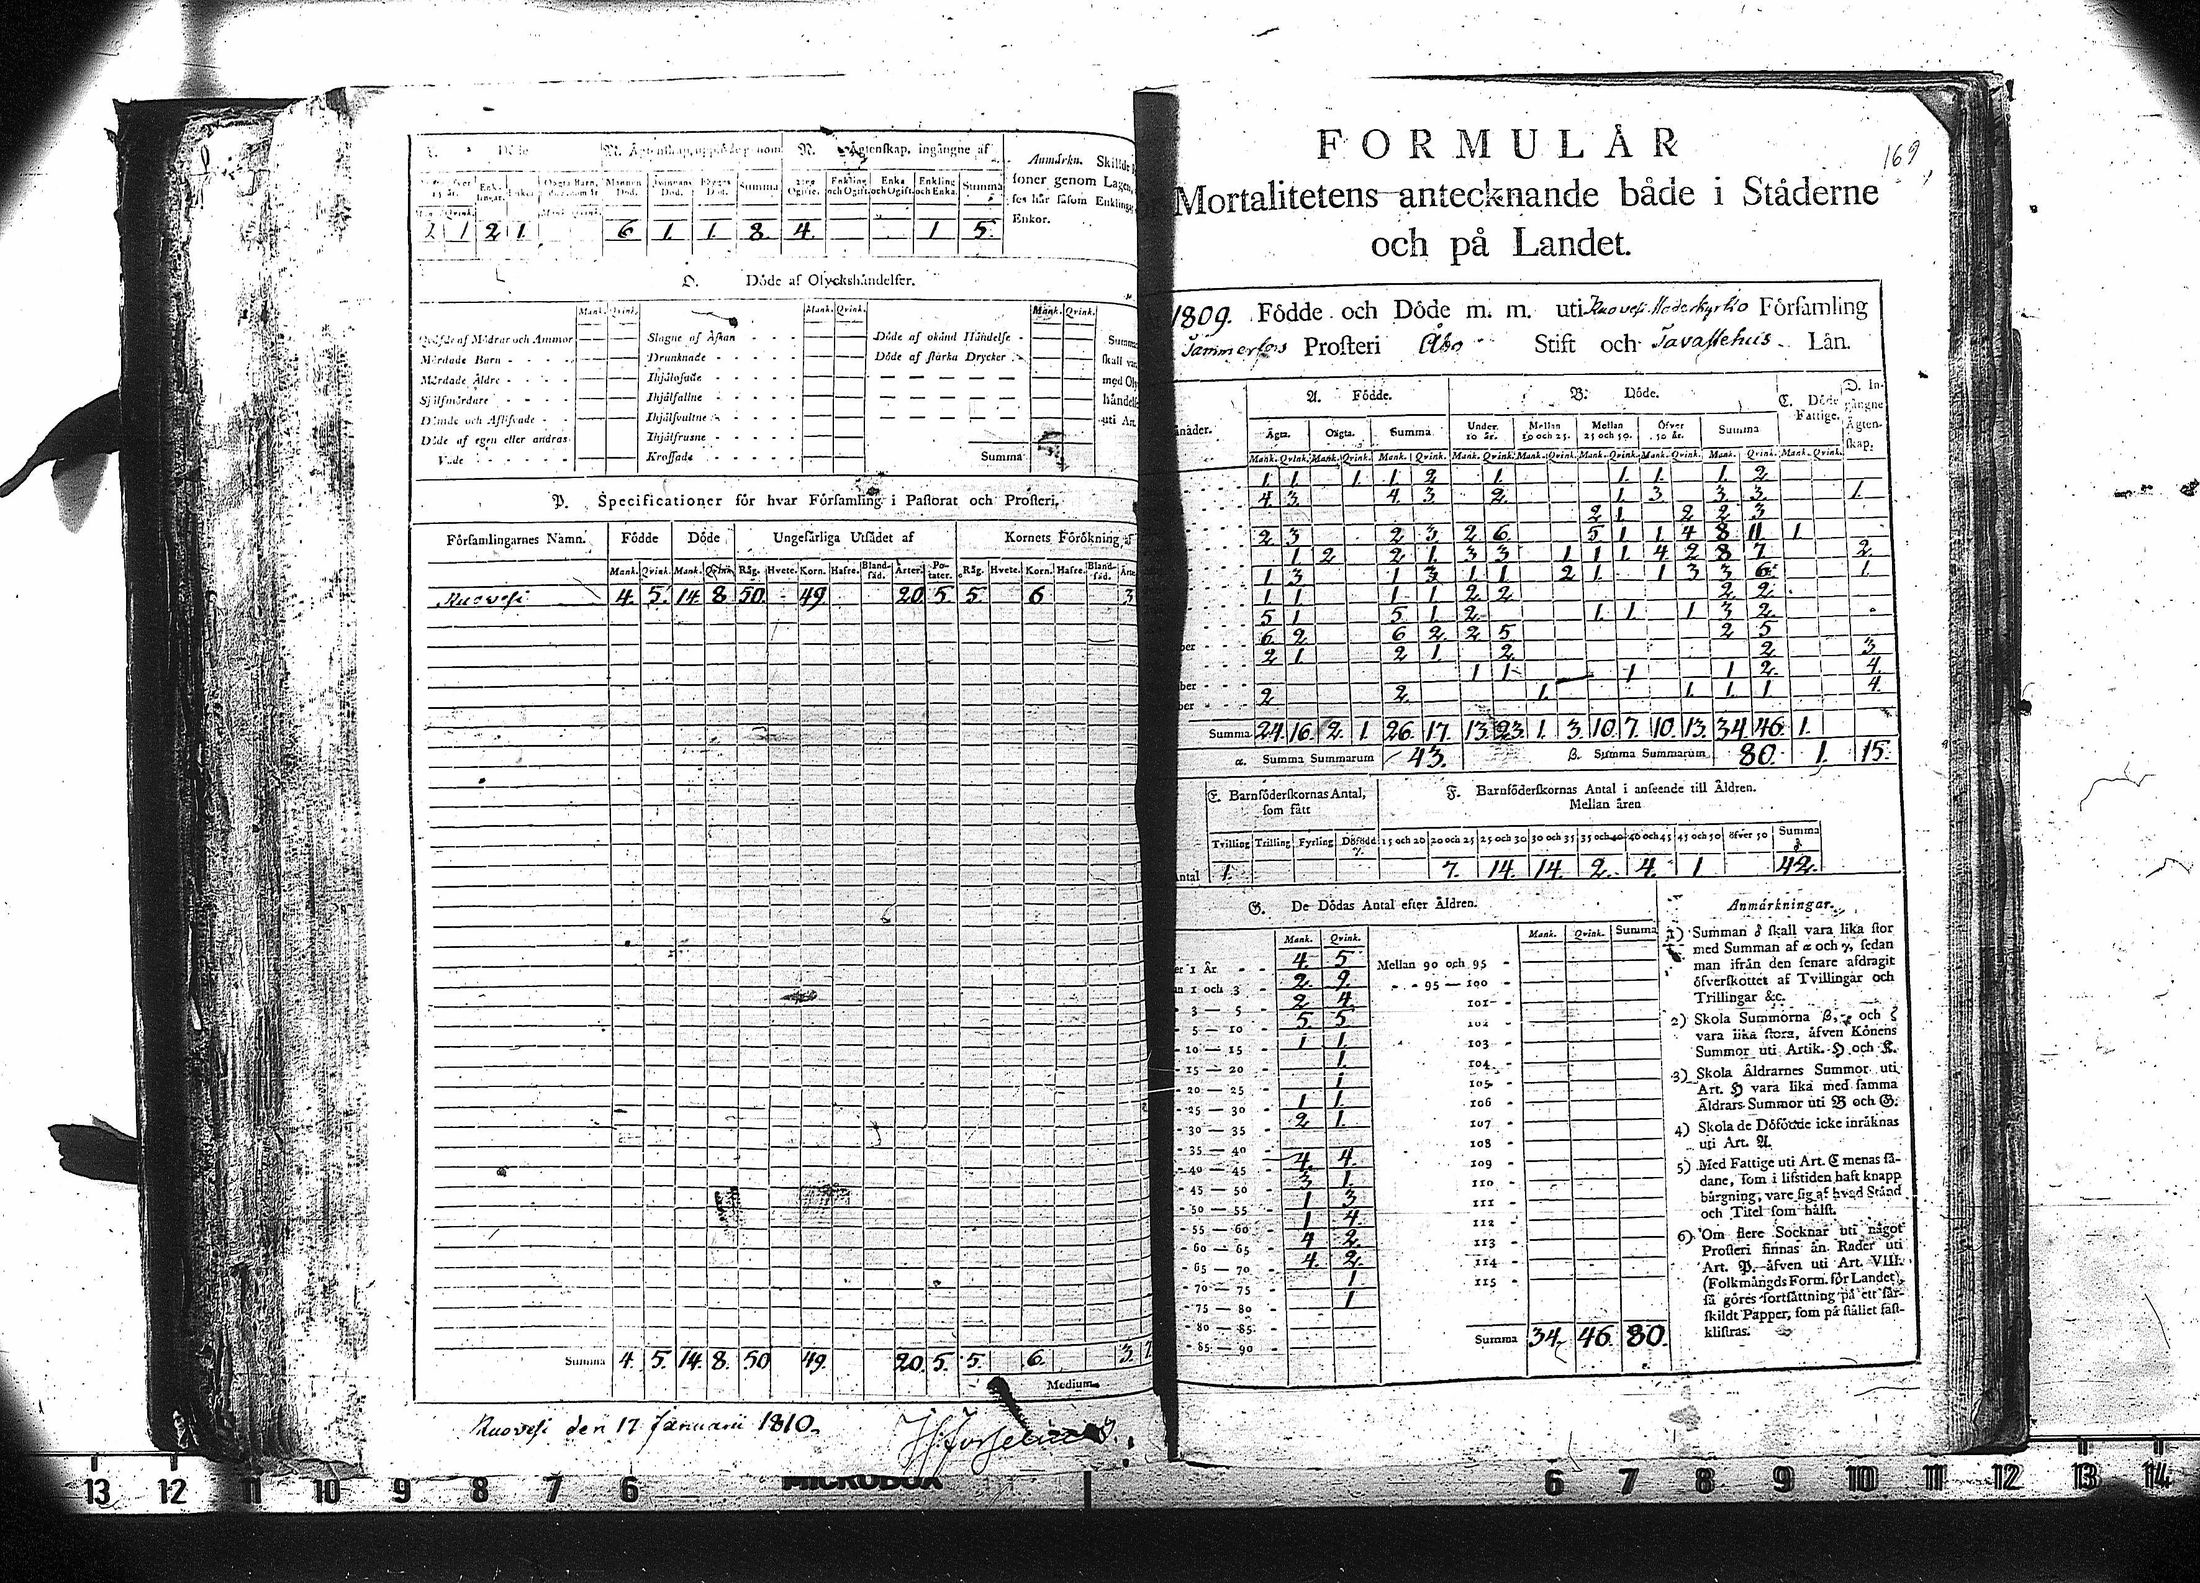 Döde
M. Ägtenskap, upplöste genom N. Ägtenskap, ingångne af
Anmärkn. Skillde
soner genom Lagen,
ses här såsom Enklingar
Enkor.
Mannens Död. Qvinnans Död. Summa Enkling och Ogift. Enka och Ogift. Enkling och Enka. Summa
2 1 2 1. 6 1. 1. 8. 4. 1 5.
O. Döde af Olyckshändelser.
Mank. Qvink. Mank. Qvink. Mank. Qvink.
Qväfde af Mödrar och Ammor Slagne af Åskan Döde af okänd Händelse
Mördade Barn Drunknade Döde af starka Drycker
Mördade Äldre Ihjälosade
Sjelfmördare Ihjälfallne
Dömde och Aflifvade Ihjälsvultne
Döde af egen eller andras Ihjälfrusne
Vade Krossade Summa
P. Specificationer för hvar Församling i Pastorat och Prosteri.
Församlingarnes Namn. Födde Döde Ungefärliga Utsädet af Kornets Förökning af
Mank. Qvink. Mank. Qvink. Råg. Hvete. Korn. Hafre. Bland-säd. Ärter. Po-tater. Råg. Hvete. Korn. Hafre. Bland-säd.
Ruovesi 4. 5. 14. 8 50. 49. 20. 5. 5. 6 3
Summa 4. 5. 14. 8. 50 49. 20. 5. 5. 6. 3.
Medium
Ruovesi den 17 Januarii 1810.
169
FORMULÄR
Mortalitetens antecknande både i Städerne
och på Landet.
1809. Födde och Döde m. m. uti Ruovesi Moderkyrko Församling
Tammerfors Prosteri Åbo Stift och Tavastehus Län.
A. Födde. B. Döde. C. Döde Fattige. D. In-gångne Ägten-skap.
Ägta. Oägta. Summa. Under 10 år. Mellan 10 och 25. Mellan 25 och 50. Öfver 50 år. Summa
Mank. Qvink. Mank. Qvink. Mank. Qvink. Mank. Qvink. Mank. Qvink. Mank. Qvink. Mank. Qvink. Mank. Qvink. Mank. Qvink.
1 1 1 1 2 1. 1. 1. 1. 2
4 3 4 3 2 1 3 3 3 1.
2 1 2 2 3
2 3 2 3 2 6 5 1 1 4 8 11 1
1 2 2 1 3 3 1 1 1 4 2 8 7 2
1 3 1 3 1 1 2 1 1 3 3 6 1
1 1 1 1 2 2 2 2
5 1 5 1 2 1. 1. 1 3 2
6 2 6 2 2 5 2 5
2 1 2 1 2 2 3
1 1 1 1 2 4.
2 2 1. 1. 1. 1 4.
Summa 24. 16. 2. 1. 26. 17. 13. 23. 1. 3. 10. 7. 10. 13. 34. 46. 1.
α. Summa Summarum 43. β. Summa Summarum 80. 1. 15.
E. Barnföderskornas Antal, som fått
F. Barnföderskornas Antal i anseende till Åldren.
Mellan åren
Tvilling Trilling Fyrling Dödfödd γ. 15 och 20 20 och 25 25 och 30 30 och 35 35 och 40 40 och 45 45 och 50 öfver 50 Summa δ
1. 7. 14. 14. 2. 4. 1 42.
G. De Dödas Antal efter Åldren.
Mank. Qvink. Mank. Qvink. Summa
1 År 4. 5 Mellan 90 och 95
1 och 3 2. 9. 95 — 100
3 — 5 2 4. 101
5 — 10 5 5 102
10 — 15 1 1. 103
15 — 20 1. 104
20 — 25 1 105
25 — 30 1 1. 106
30 — 35 2 1. 107
35 — 40 108
40 — 45 4. 4. 109
45 — 50 3 1. 110
50 — 55 1 3 111
55 — 60 1 4. 112
60 — 65 4 2. 113
65 — 70 4. 2. 114
70 — 75 1 115
75 — 80 1
80 — 85
85 — 90 Summa 34. 46. 80.
Anmärkningar.
1) Summan δ skall vara lika stor
med Summan af α och γ, sedan
man ifrån den senare afdragit
öfverskottet af Tvillingar och
Trillingar &c.
2) Skola Summorna β, ε och ζ
vara lika stora, äfven Könens
Summor uti Artik. H och K.
3) Skola Åldrarnes Summor uti
Art. H vara lika med samma
Åldrars Summor uti B och G.
4) Skola de Dödfödde icke inräknas
uti Art. A.
5) Med Fattige uti Art. C menas så-
dane, som i lifstiden haft knapp
bärgning, vare sig af hvad Stånd
och Titel som hälst.
6) Om flere Socknar uti något
Prosteri finnas än Rader uti
Art. P. äfven uti Art. VIII.
(Folkmängds Form. för Landet),
så göres fortsättning på ett sär-
skildt Papper, som på stället fast-
klistras.
13 12 11 10 9 8 7 6 MICROBOX 6 7 8 9 10 11 12 13 14